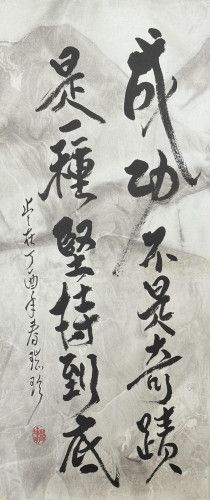 成功不是奇蹟
是一種堅持到底
丁酉年春